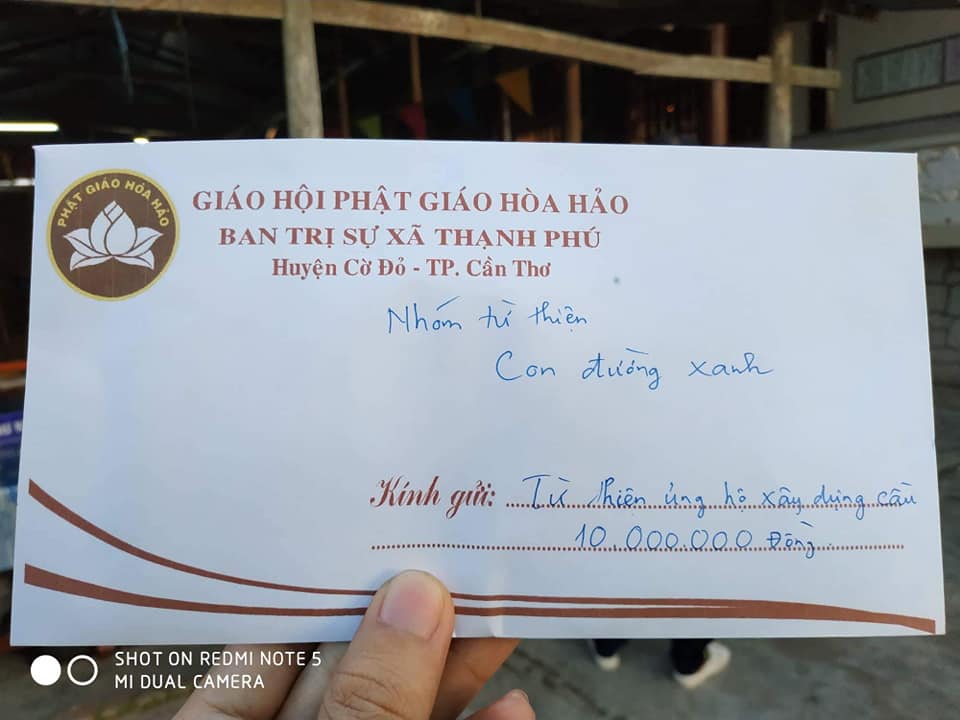 PHẬT GIÁO HÒA HẢO
GIÁO HỘI PHẬT GIÁO HÒA HẢO
BAN TRỊ SỰ XÃ THẠNH PHÚ
Huyện Cờ Đỏ - TP. Cần Thơ
Nhóm từ thiện
Con đường xanh
Kính gửi: Từ thiện ủng hộ xây dựng cầu
10.000.000 Đồng
SHOT ON REDMI NOTE 5
MI DUAL CAMERA